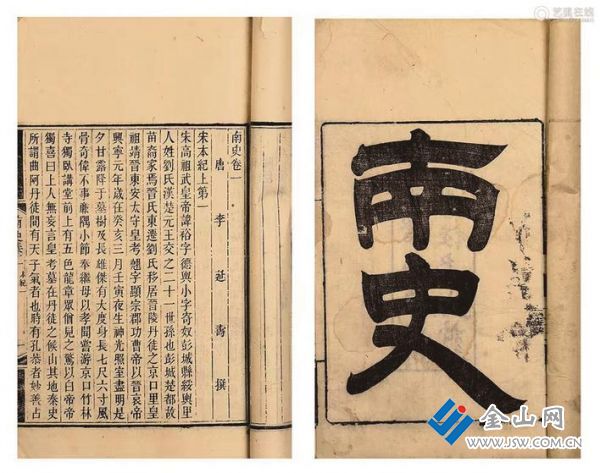 南史卷一
唐 李延壽 撰
宋本紀上第一
宋高祖武皇帝諱裕字德輿小字寄奴彭城縣綏輿里
人姓劉氏漢楚元王交之二十一世孫也彭城楚都故
苗裔家焉晉氏東遷劉氏移居晉陵丹徒之京口里皇
祖靖晉東安太守皇考翹字顯宗郡功曹帝以晉哀帝
興寧元年歲在癸亥三月壬寅夜生神光照室盡明是
夕甘露降于墓樹及長雄傑有大度身長七尺六寸風
骨奇偉不事廉隅小節奉繼母以孝聞嘗游京口竹林
寺獨臥講堂前上有五色龍章眾僧見之驚以白帝帝
獨喜曰上人無妄言皇考墓在丹徒之候山其地秦史
所謂曲阿丹徒間有天子氣者也時有孔恭者妙善占
南史
艺典在线
金山网
WWW.JSW.COM.CN